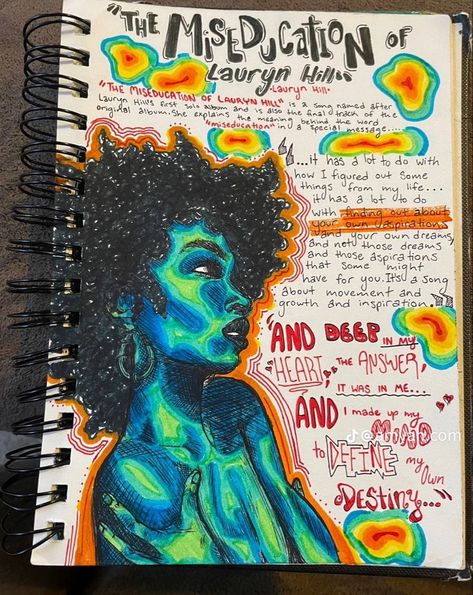 "THE MISEDUCATION OF
Lauryn Hill"
-Lauryn Hill-
"THE MISEDUCATION OF LAURYN HILL" is a song named after
Lauryn Hill's first solo album and is also the final track of the
original album. She explains the meaning behind the word
"miseducation" in a special message....
"...it has a lot to do with
how I figured out some
things from my life...
it has a lot to do
with finding out about
your own aspirations
and your own dreams,
and not those dreams
and those aspirations
that some might
have for you. It's a song
about movement and
growth and inspiration."
"AND DEEP in my
HEART, THE ANSWER,
IT WAS IN ME...
AND I made up my
MIND
to DEFINE my
own
Destiny..."